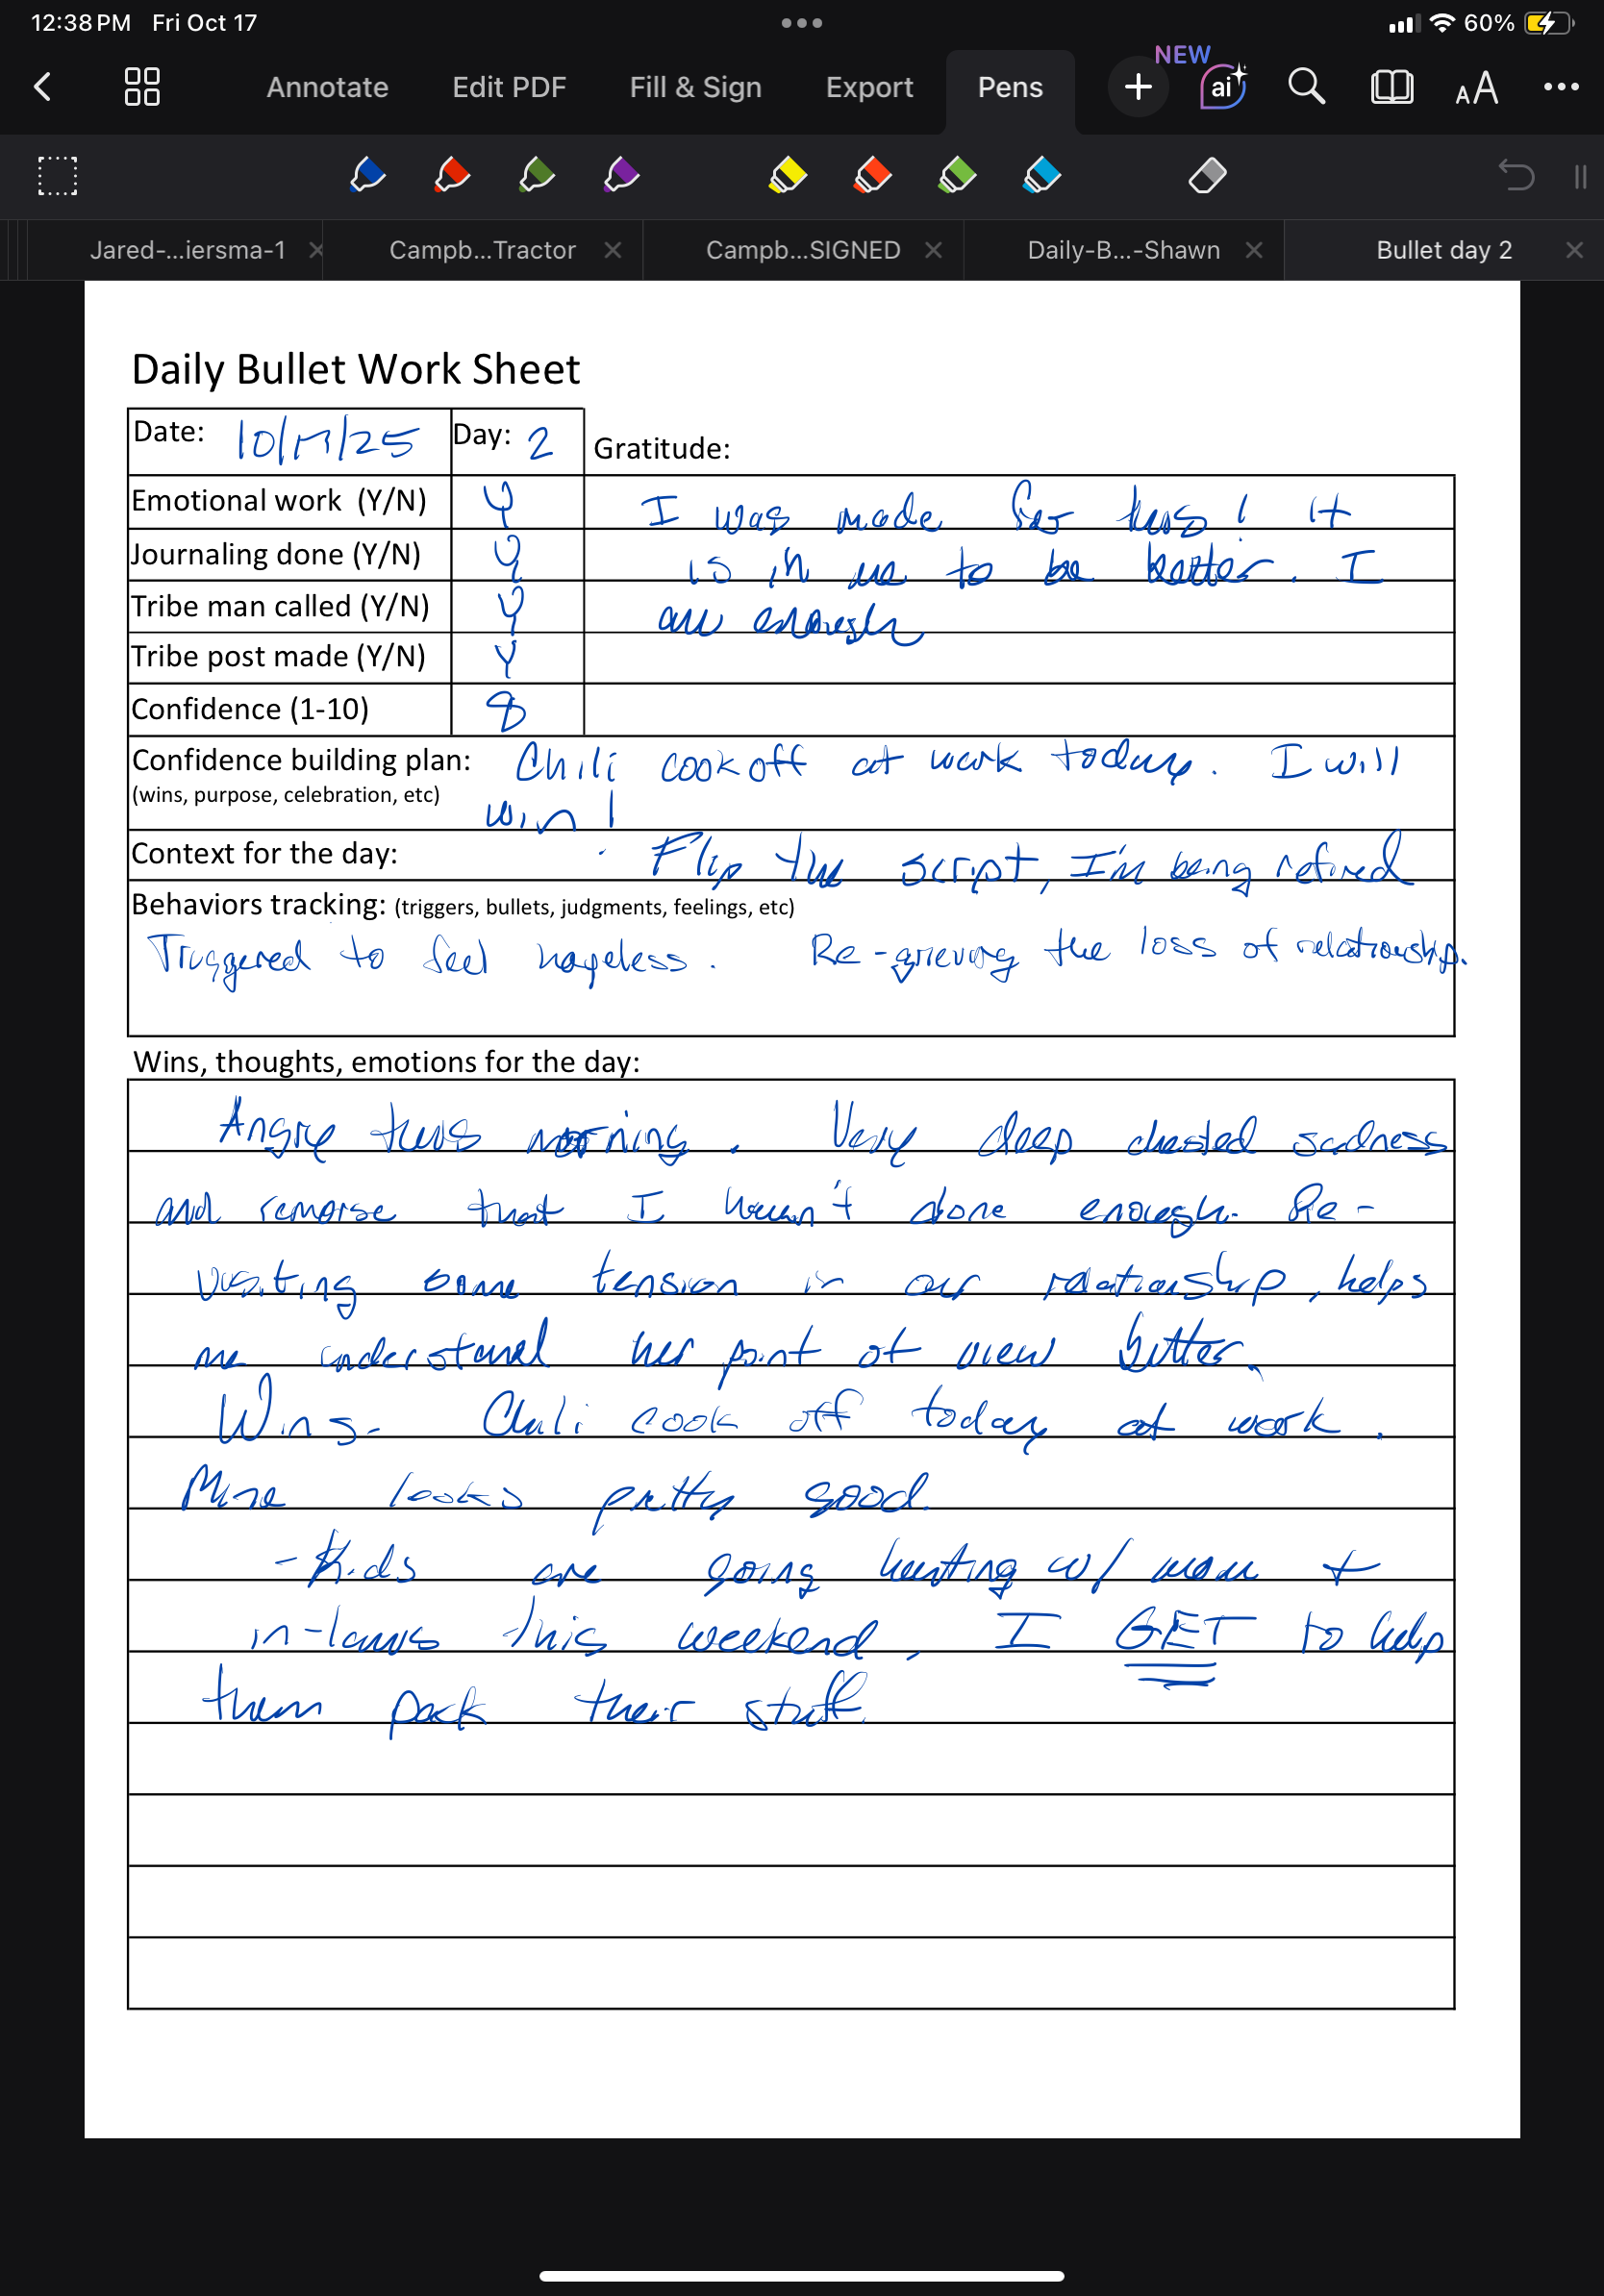 12:38 PM Fri Oct 17
60%
Annotate Edit PDF Fill & Sign Export Pens + NEW ai AA
Jared-...iersma-1 × Campb...Tractor × Campb...SIGNED × Daily-B...-Shawn × Bullet day 2 ×
Daily Bullet Work Sheet
Date: 10/17/25 Day: 2 Gratitude:
Emotional work (Y/N) Y I was made for this! It
Journaling done (Y/N) Y is in me to be better. I
Tribe man called (Y/N) Y am enough
Tribe post made (Y/N) Y
Confidence (1-10) 8
Confidence building plan: Chili cook off at work today. I will
(wins, purpose, celebration, etc) win!
Context for the day: Flip the script, I'm being refined
Behaviors tracking: (triggers, bullets, judgments, feelings, etc)
Triggered to feel hopeless. Re-grieving the loss of relationship.
Wins, thoughts, emotions for the day:
Angry this morning. Very deep chested sadness
and remorse that I haven't done enough. Re-
visiting some tension in our relationship, helps
me understand her point of view better.
Wins- Chili cook off today at work.
Mine looks pretty good.
- Kids are going hunting w/ mom +
in-laws this weekend, I GET to help
them pack their stuff.